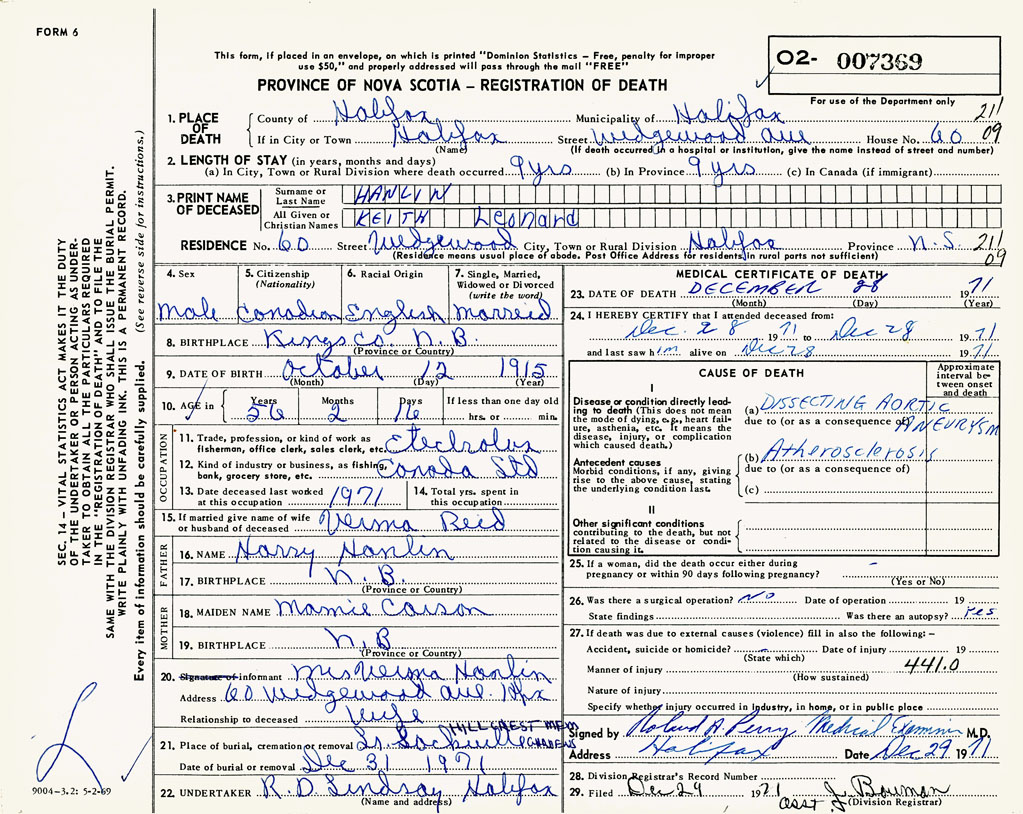 FORM 6
This form, if placed in an envelope, on which is printed "Dominion Statistics – Free, penalty for improper
use $50," and properly addressed will pass through the mail "FREE"
PROVINCE OF NOVA SCOTIA – REGISTRATION OF DEATH
02- 007369
For use of the Department only
1. PLACE OF DEATH County of Halifax Municipality of Halifax 211
If in City or Town Halifax Street Wedgewood Ave House No. 60 09
(Name) (If death occurred in a hospital or institution, give the name instead of street and number)
2. LENGTH OF STAY (in years, months and days)
(a) In City, Town or Rural Division where death occurred 9 yrs (b) In Province 9 yrs (c) In Canada (if immigrant)
3. PRINT NAME OF DECEASED Surname or Last Name HANLIN
All Given or Christian Names KEITH Leonard
RESIDENCE No. 60 Street Wedgewood City, Town or Rural Division Halifax Province N.S. 211
(Residence means usual place of abode. Post Office Address for residents in rural parts not sufficient) 09
4. Sex 5. Citizenship (Nationality) 6. Racial Origin 7. Single, Married, Widowed or Divorced (write the word)
Male Canadian English Marreid
8. BIRTHPLACE Kings Co. N.B.
(Province or Country)
9. DATE OF BIRTH October 12 1915
(Month) (Day) (Year)
10. AGE in Years Months Days If less than one day old
56 2 16 hrs. or min.
OCCUPATION
11. Trade, profession, or kind of work as fisherman, office clerk, sales clerk, etc. Electrolux
12. Kind of industry or business, as fishing, bank, grocery store, etc. Canada Std
13. Date deceased last worked at this occupation 1971 14. Total yrs. spent in this occupation
15. If married give name of wife or husband of deceased Verma Reid
FATHER
16. NAME Harry Hanlin
17. BIRTHPLACE N.B.
(Province or Country)
MOTHER
18. MAIDEN NAME Mamie Carson
19. BIRTHPLACE N.B
(Province or Country)
20. Signature of informant Mrs Verma Hanlin
Address 60 Wedgewood Ave. Hfx
Relationship to deceased Wife
HILLCREST MEM
21. Place of burial, cremation or removal Sackville GARDENS
Date of burial or removal Dec 31 1971
22. UNDERTAKER R.D. Lindsay Halifax
(Name and address)
MEDICAL CERTIFICATE OF DEATH
23. DATE OF DEATH DECEMBER 28 1971
(Month) (Day) (Year)
24. I HEREBY CERTIFY that I attended deceased from:
Dec. 28 1971 to Dec 28 1971
and last saw him alive on Dec 28 1971
CAUSE OF DEATH
Approximate interval between onset and death
I
Disease or condition directly leading to death (This does not mean the mode of dying, e.g., heart failure, asthenia, etc. It means the disease, injury, or complication which caused death.)
(a) DISSECTING AORTIC
due to (or as a consequence of) ANEURYSM
Antecedent causes
Morbid conditions, if any, giving rise to the above cause, stating the underlying condition last.
(b) Atherosclerosis
due to (or as a consequence of)
(c)
II
Other significant conditions
contributing to the death, but not related to the disease or condition causing it.
25. If a woman, did the death occur either during
pregnancy or within 90 days following pregnancy? –
(Yes or No)
26. Was there a surgical operation? No Date of operation 19
State findings Was there an autopsy? Yes
27. If death was due to external causes (violence) fill in also the following:–
Accident, suicide or homicide? Date of injury 19
(State which)
Manner of injury 441.0
(How sustained)
Nature of injury
Specify whether injury occurred in Industry, in home, or in public place
Signed by Roland A Perry Medical Examiner M.D.
Address Halifax Date Dec 29 1971
28. Division Registrar's Record Number
29. Filed Dec 29 1971 J Bowman
asst (Division Registrar)
SEC. 14 – VITAL STATISTICS ACT MAKES IT THE DUTY
OF THE UNDERTAKER OR PERSON ACTING AS UNDER-
TAKER TO OBTAIN ALL THE PARTICULARS REQUIRED
IN THE "REGISTRATION OF DEATH" AND TO FILE THE
SAME WITH THE DIVISION REGISTRAR WHO SHALL ISSUE THE BURIAL PERMIT.
WRITE PLAINLY WITH UNFADING INK. THIS IS A PERMANENT RECORD.
Every item of information should be carefully supplied. (See reverse side for instructions.)
9004-3.2: 5-2-69